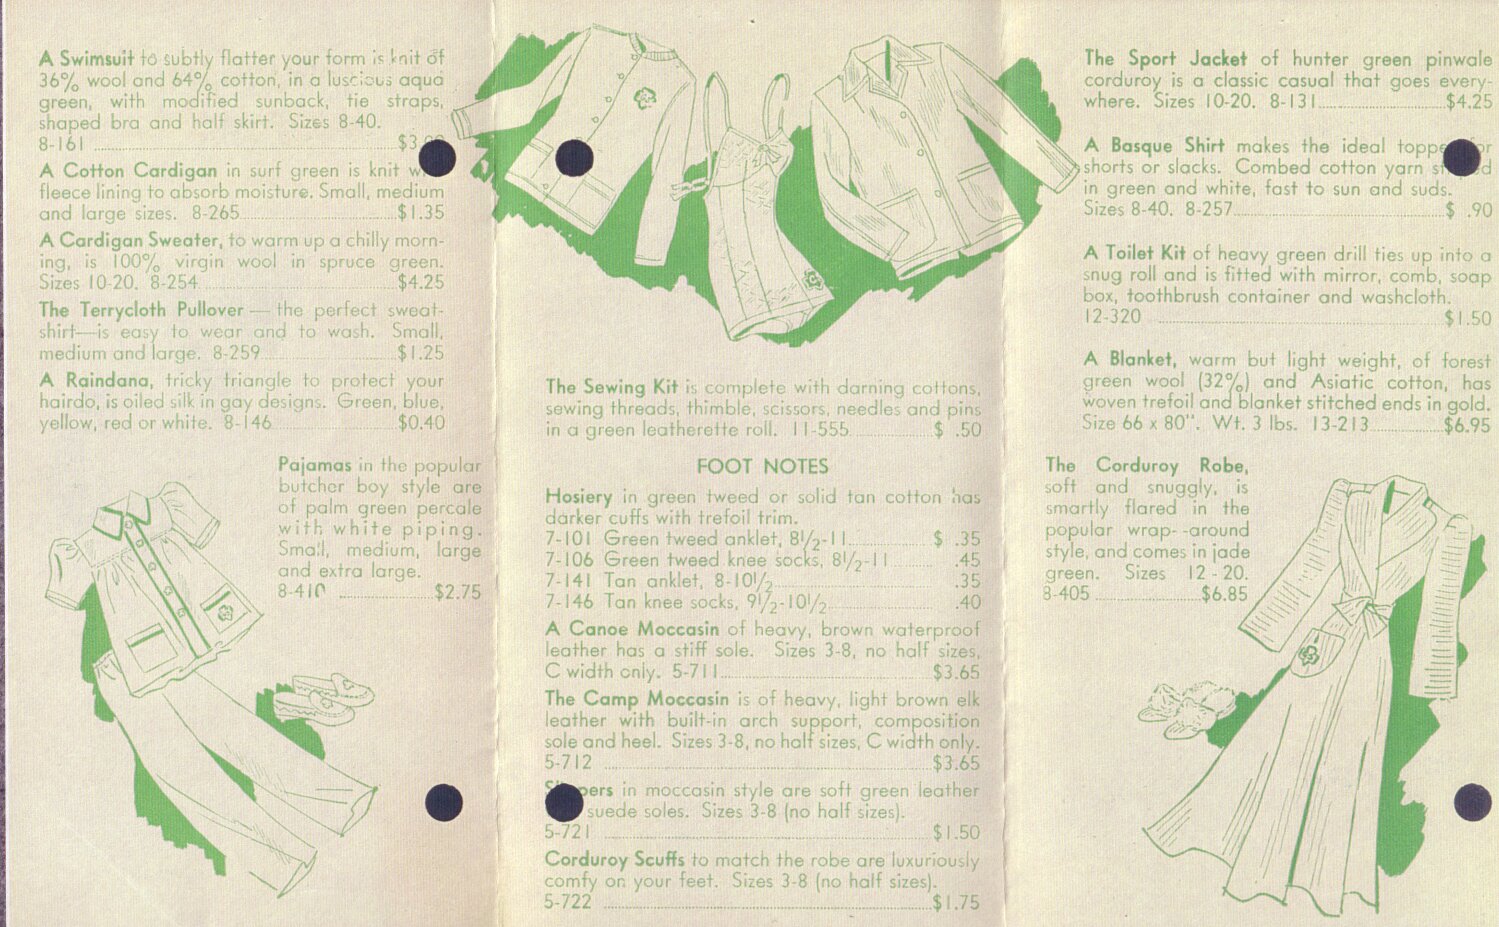 A Swimsuit to subtly flatter your form is knit of
36% wool and 64% cotton, in a luscious aqua
green, with modified sunback, tie straps,
shaped bra and half skirt. Sizes 8-40.
8-161 $3.
A Cotton Cardigan in surf green is knit
fleece lining to absorb moisture. Small, medium
and large sizes. 8-265 $1.35
A Cardigan Sweater, to warm up a chilly morn-
ing, is 100% virgin wool in spruce green.
Sizes 10-20. 8-254 $4.25
The Terrycloth Pullover — the perfect sweat-
shirt—is easy to wear and to wash. Small,
medium and large. 8-259 $1.25
A Raindana, tricky triangle to protect your
hairdo, is oiled silk in gay designs. Green, blue,
yellow, red or white. 8-146 $0.40
Pajamas in the popular
butcher boy style are
of palm green percale
with white piping.
Small, medium, large
and extra large.
8-410 $2.75
The Sewing Kit is complete with darning cottons,
sewing threads, thimble, scissors, needles and pins
in a green leatherette roll. 11-555 $ .50
FOOT NOTES
Hosiery in green tweed or solid tan cotton has
darker cuffs with trefoil trim.
7-101 Green tweed anklet, 8½-11 $ .35
7-106 Green tweed knee socks, 8½-11 .45
7-141 Tan anklet, 8-10½ .35
7-146 Tan knee socks, 9½-10½ .40
A Canoe Moccasin of heavy, brown waterproof
leather has a stiff sole. Sizes 3-8, no half sizes,
C width only. 5-711 $3.65
The Camp Moccasin is of heavy, light brown elk
leather with built-in arch support, composition
sole and heel. Sizes 3-8, no half sizes, C width only.
5-712 $3.65
Slippers in moccasin style are soft green leather
suede soles. Sizes 3-8 (no half sizes).
5-721 $1.50
Corduroy Scuffs to match the robe are luxuriously
comfy on your feet. Sizes 3-8 (no half sizes).
5-722 $1.75
The Sport Jacket of hunter green pinwale
corduroy is a classic casual that goes every-
where. Sizes 10-20. 8-131 $4.25
A Basque Shirt makes the ideal topper for
shorts or slacks. Combed cotton yarn striped
in green and white, fast to sun and suds.
Sizes 8-40. 8-257 $ .90
A Toilet Kit of heavy green drill ties up into a
snug roll and is fitted with mirror, comb, soap
box, toothbrush container and washcloth.
12-320 $1.50
A Blanket, warm but light weight, of forest
green wool (32%) and Asiatic cotton, has
woven trefoil and blanket stitched ends in gold.
Size 66 x 80". Wt. 3 lbs. 13-213 $6.95
The Corduroy Robe,
soft and snuggly, is
smartly flared in the
popular wrap- -around
style, and comes in jade
green. Sizes 12 - 20.
8-405 $6.85